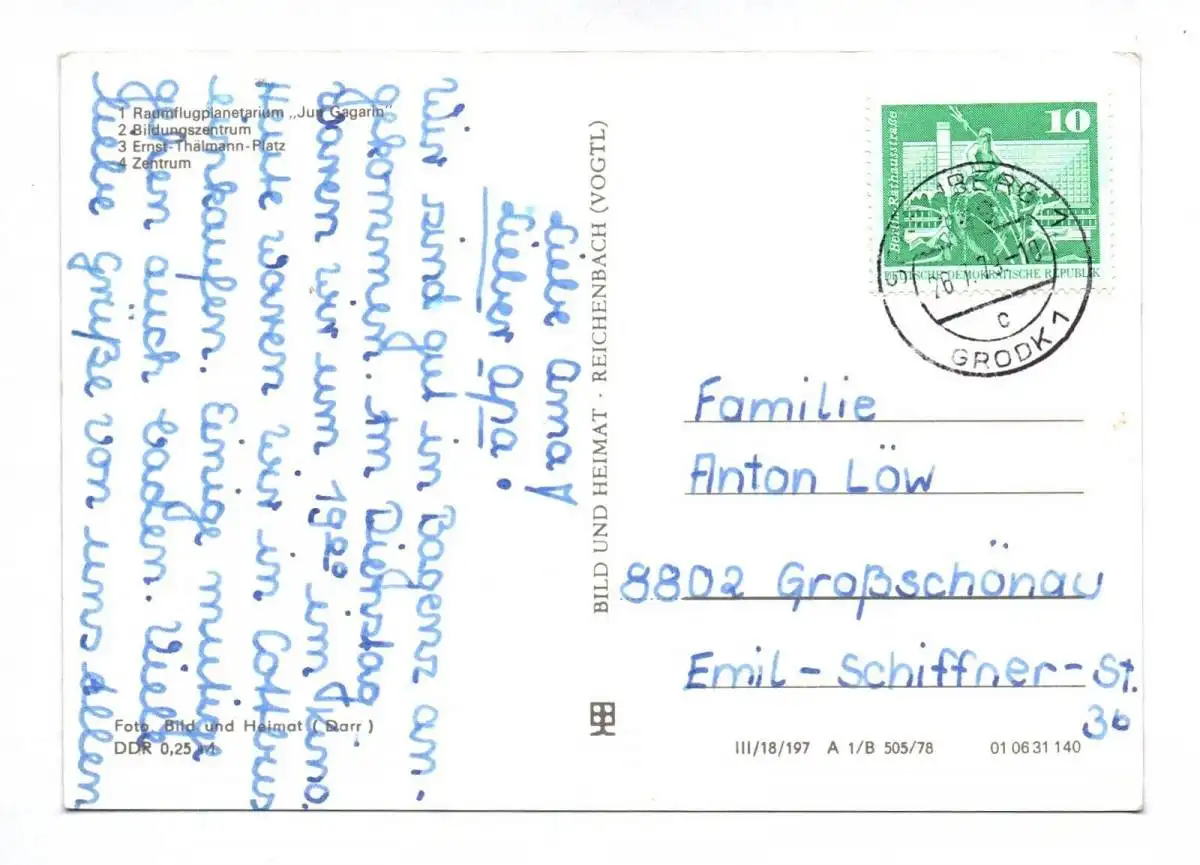 1 Raumflugplanetarium „Juri Gagarin"
2 Bildungszentrum
3 Ernst-Thälmann-Platz
4 Zentrum
Liebe Oma!
Lieber Opa!
Wir sind gut in Bagenz an-
gekommen. Am Dienstag
waren wir um 19²⁰ im Kino.
Heute waren wir in Cottbus
einkaufen. Einige mutige
gehen auch baden. Viele
liebe Grüße von uns allen
Foto: Bild und Heimat (Darr)
DDR 0,25 M
BILD UND HEIMAT · REICHENBACH (VOGTL)
Berlin, Rathausstraße
10
DEUTSCHE DEMOKRATISCHE REPUBLIK
BERG 1
c
GRODK 1
Familie
Anton Löw
8802 Großschönau
Emil-Schiffner-St.
36
III/18/197 A 1/B 505/78 01 06 31 140